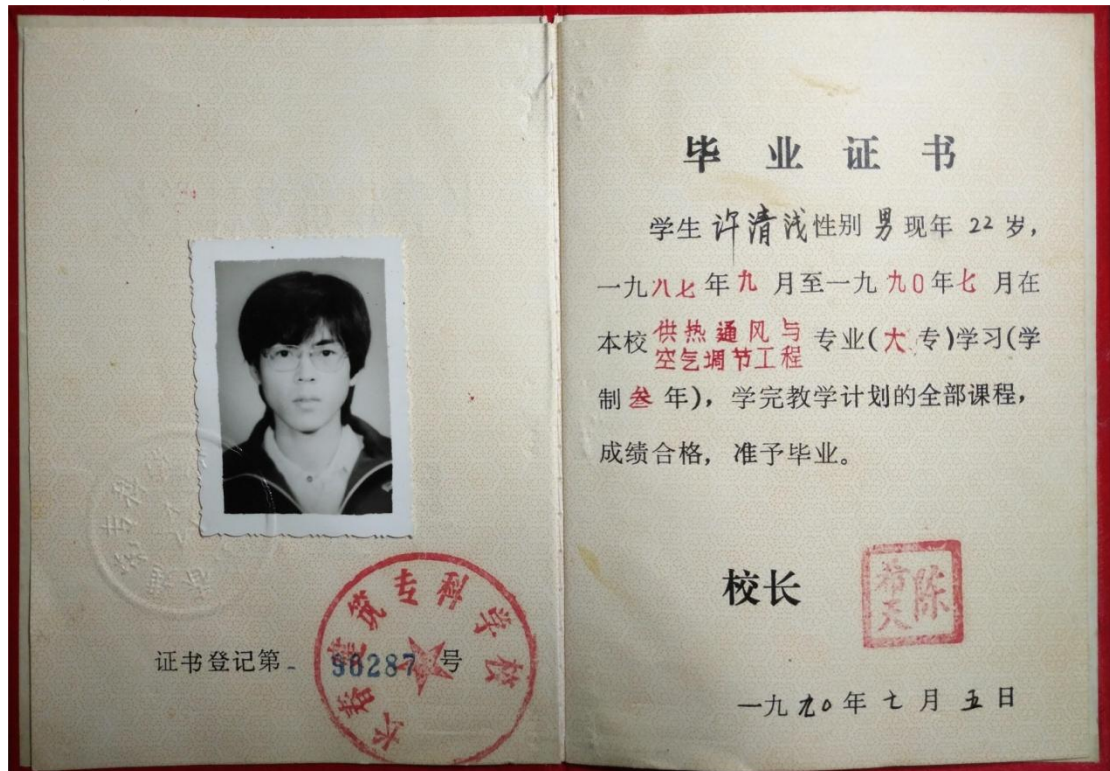 证书登记第
90287号
长春建筑专科学校
毕业证书
学生许清浅性别男现年22岁,
一九八七年九月至一九九〇年七月在
本校供热通风与空气调节工程专业(大专)学习(学
制叁年),学完教学计划的全部课程,
成绩合格,准予毕业。
校长
陈
一九九〇年七月五日